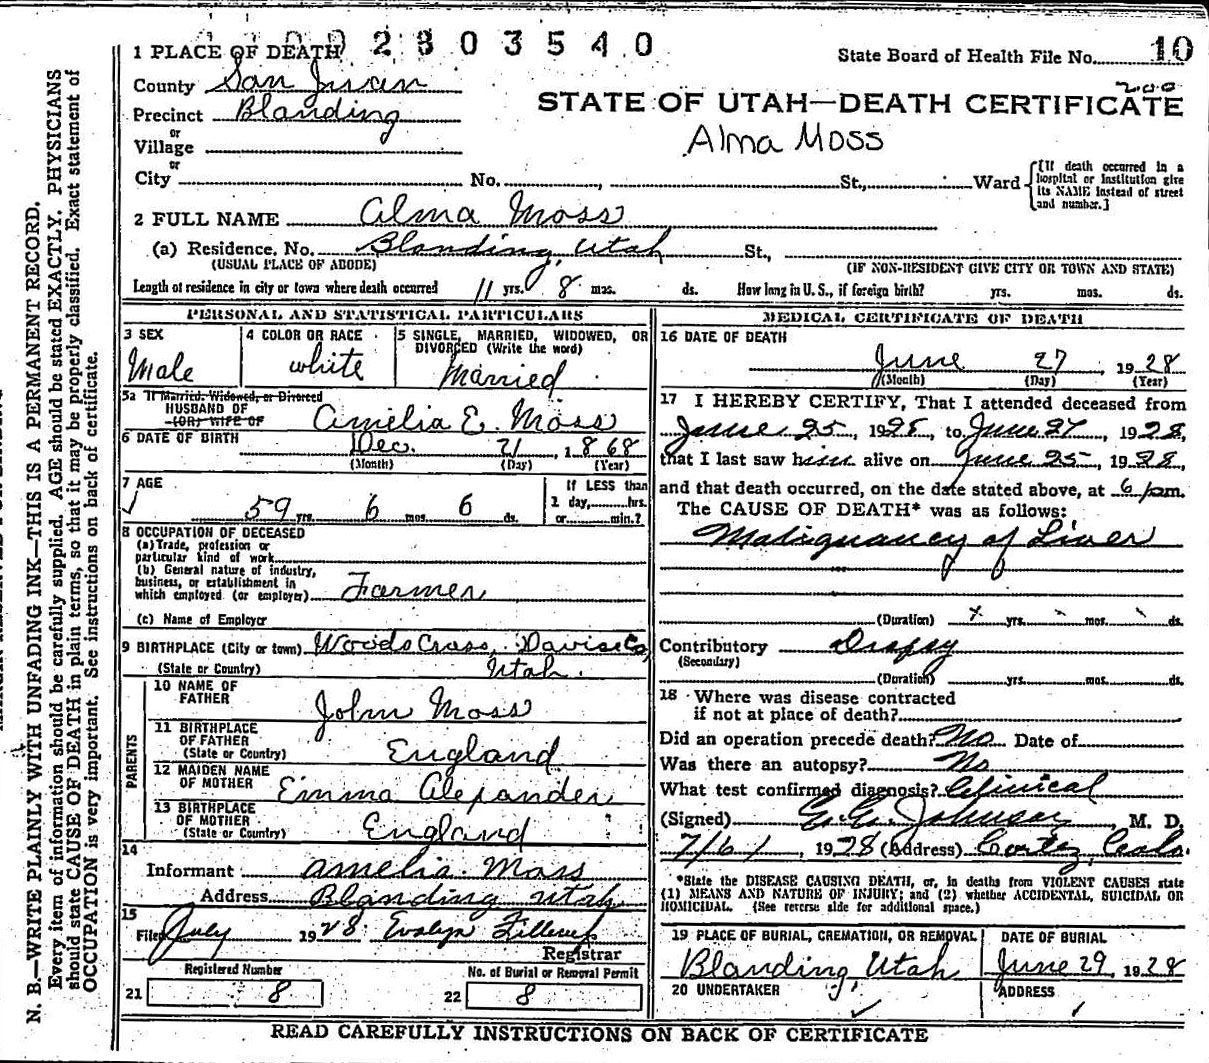 2803540
State Board of Health File No. 10
1 PLACE OF DEATH
County San Juan
200
STATE OF UTAH—DEATH CERTIFICATE
Precinct Blanding
Alma Moss
or
Village
or
City No. , St., Ward
[If death occurred in a
hospital or institution give
its NAME instead of street
and number.]
2 FULL NAME Alma Moss
(a) Residence. No. Blanding, Utah St.,
(USUAL PLACE OF ABODE) (IF NON-RESIDENT GIVE CITY OR TOWN AND STATE)
Length of residence in city or town where death occurred 11 yrs. 8 mos. ds. How long in U. S., if foreign birth? yrs. mos. ds.
PERSONAL AND STATISTICAL PARTICULARS
3 SEX
Male
4 COLOR OR RACE
white
5 SINGLE, MARRIED, WIDOWED, OR
DIVORCED (Write the word)
Married
5a If Married, Widowed, or Divorced
HUSBAND OF
(OR) WIFE OF Amelia E. Moss
6 DATE OF BIRTH
Dec. 21, 1868
(Month) (Day) (Year)
7 AGE
59 yrs. 6 mos. 6 ds.
If LESS than
1 day, hrs.
or min.?
8 OCCUPATION OF DECEASED
(a) Trade, profession or
particular kind of work
(b) General nature of industry,
business, or establishment in
which employed (or employer) Farmer
(c) Name of Employer
9 BIRTHPLACE (City or town) Woods Cross, Davis Co,
(State or Country) Utah.
PARENTS
10 NAME OF
FATHER John Moss
11 BIRTHPLACE
OF FATHER
(State or Country) England
12 MAIDEN NAME
OF MOTHER Emma Alexander
13 BIRTHPLACE
OF MOTHER
(State or Country) England
14
Informant Amelia Moss
Address Blanding Utah
15
Filed July 1928 Evalyn
Registrar
Registered Number
21 8
No. of Burial or Removal Permit
22 8
MEDICAL CERTIFICATE OF DEATH
16 DATE OF DEATH
June 27, 1928
(Month) (Day) (Year)
17 I HEREBY CERTIFY, That I attended deceased from
June 25, 1928, to June 27, 1928,
that I last saw him alive on June 25, 1928,
and that death occurred, on the date stated above, at 6 pm.
The CAUSE OF DEATH* was as follows:
Malignancy of Liver
(Duration) yrs. mos. ds.
Contributory Dropsy
(Secondary)
(Duration) yrs. mos. ds.
18 Where was disease contracted
if not at place of death?
Did an operation precede death? No Date of
Was there an autopsy? No
What test confirmed diagnosis? Clinical
(Signed) E. E. Johnson, M. D.
7/6/ 1928 (Address) Cortez, Colo.
*State the DISEASE CAUSING DEATH, or, in deaths from VIOLENT CAUSES state
(1) MEANS AND NATURE OF INJURY; and (2) whether ACCIDENTAL, SUICIDAL OR
HOMICIDAL. (See reverse side for additional space.)
19 PLACE OF BURIAL, CREMATION, OR REMOVAL
Blanding, Utah
DATE OF BURIAL
June 29, 1928
20 UNDERTAKER
ADDRESS
READ CAREFULLY INSTRUCTIONS ON BACK OF CERTIFICATE
N. B.—WRITE PLAINLY WITH UNFADING INK—THIS IS A PERMANENT RECORD.
Every item of information should be carefully supplied. AGE should be stated EXACTLY. PHYSICIANS
should state CAUSE OF DEATH in plain terms, so that it may be properly classified. Exact statement of
OCCUPATION is very important. See instructions on back of certificate.